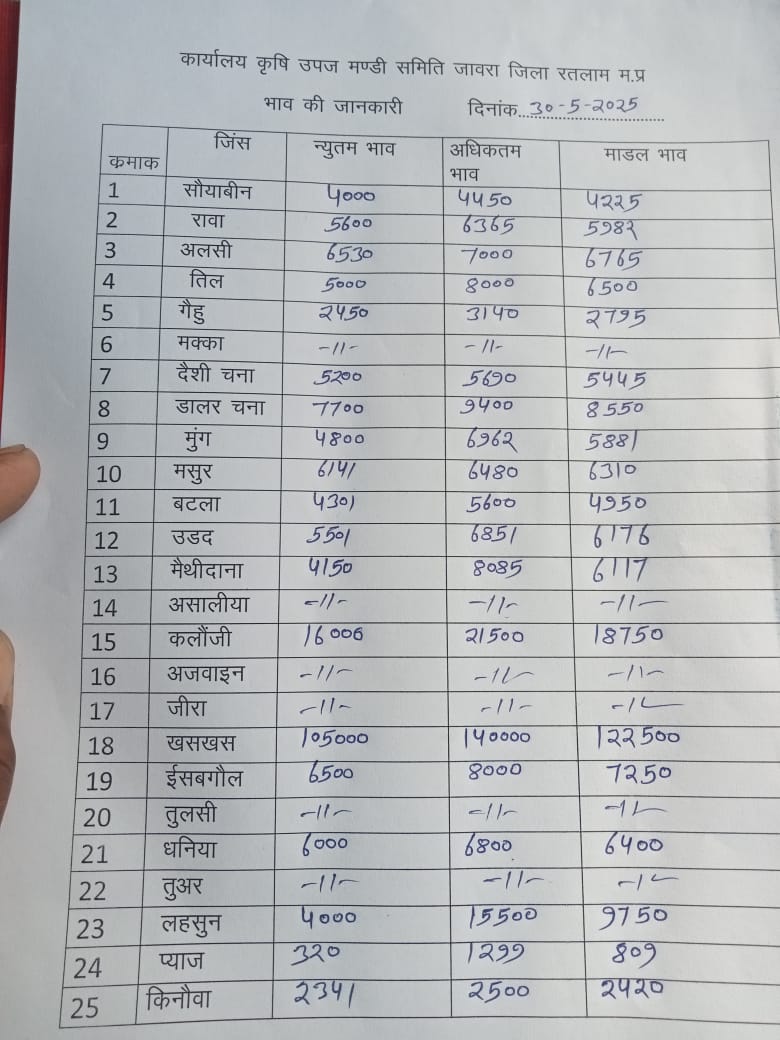 कार्यालय कृषि उपज मण्डी समिति जावरा जिला रतलाम म.प्र
भाव की जानकारी दिनांक...30-5-2025
कमाक जिंस न्युतम भाव अधिकतम भाव माडल भाव
1 सौयाबीन 4000 4450 4225
2 रावा 5600 6365 5982
3 अलसी 6530 7000 6765
4 तिल 5000 8000 6500
5 गैहु 2450 3140 2795
6 मक्का -11- -11- -11-
7 दैशी चना 5200 5690 5445
8 डालर चना 7700 9400 8550
9 मुंग 4800 6962 5881
10 मसुर 6141 6480 6310
11 बटला 4301 5600 4950
12 उडद 5501 6851 6176
13 मैथीदाना 4150 8085 6117
14 असालीया -11- -11- -11-
15 कलौंजी 16000 21500 18750
16 अजवाइन -11- -11- -11-
17 जीरा -11- -11- -11-
18 खसखस 105000 140000 122500
19 ईसबगौल 6500 8000 7250
20 तुलसी -11- -11- -11-
21 धनिया 6000 6800 6400
22 तुअर -11- -11- -11-
23 लहसुन 4000 15500 9750
24 प्याज 320 1299 809
25 किनौवा 2341 2500 2420